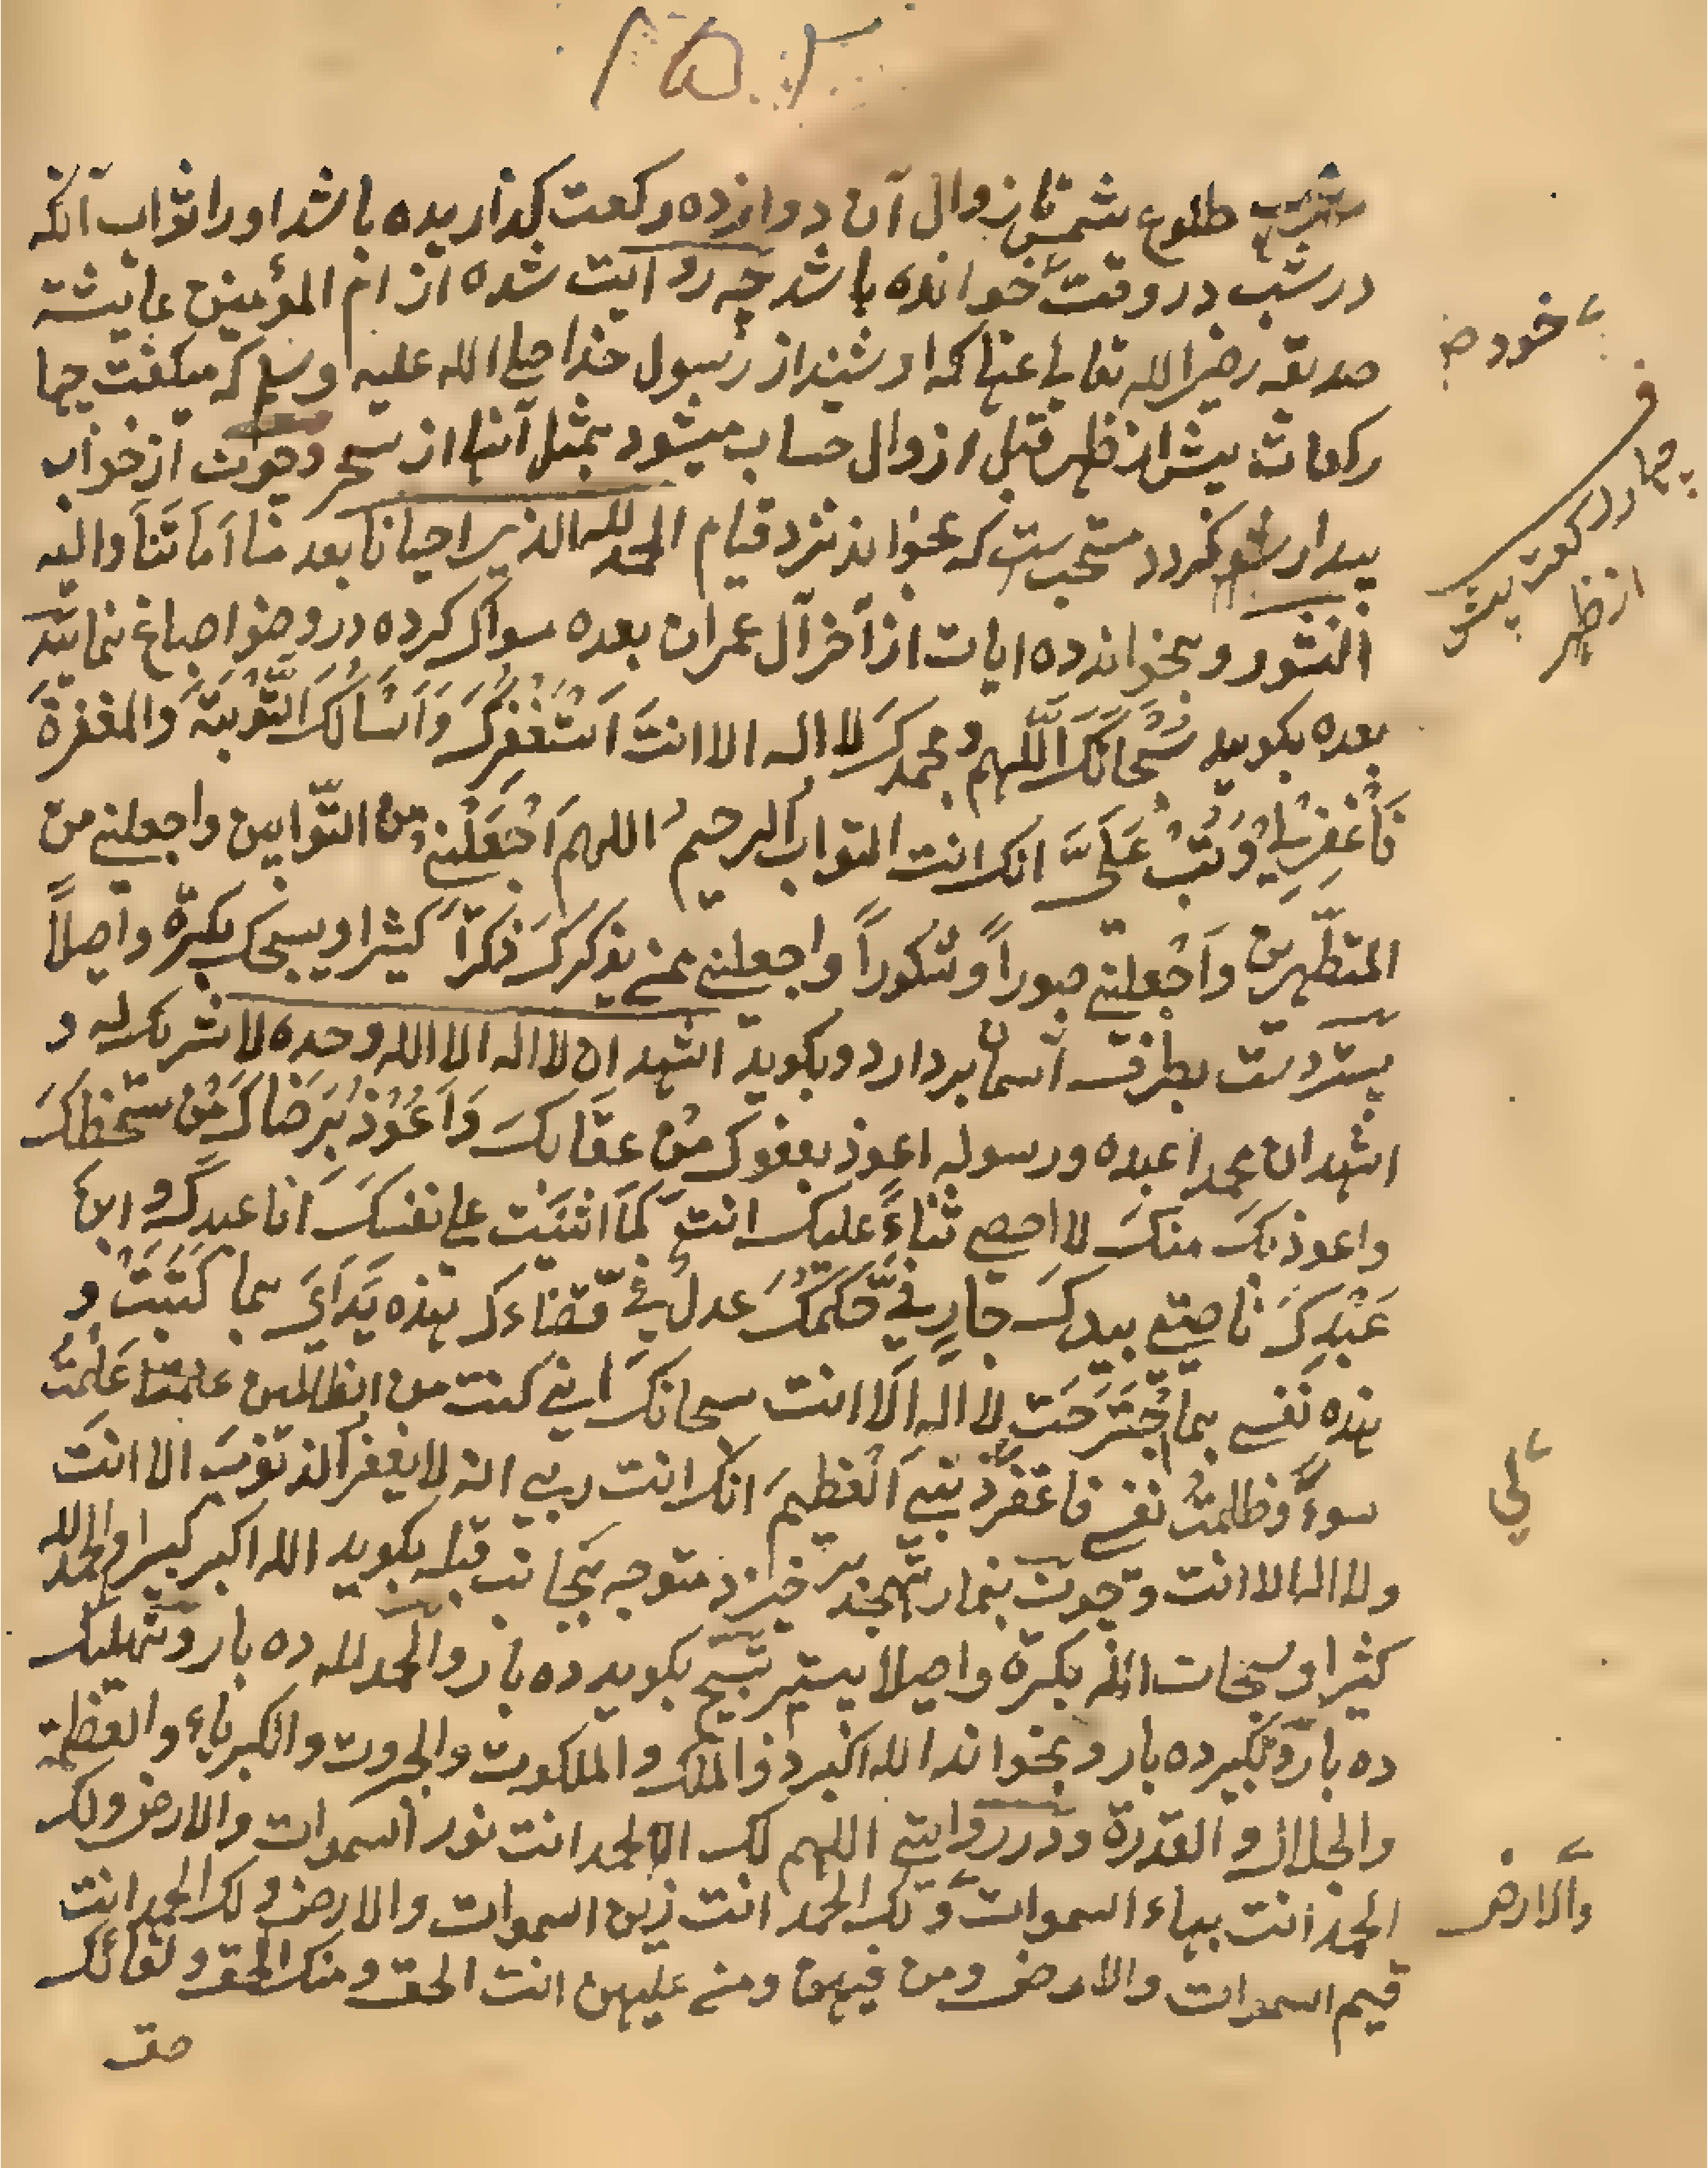 طلوع شمس تا زوال آن دوازده رکعت کذاریده باشد اورا ثواب آنکه
در شب در وقت خوانده باشد چه روایت شده از ام المؤمنین عائیشه
صدیقه رضی الله تعالی عنها که او شنید از رسول خدا صلی الله علیه وسلم که میکفت چهار
رکعات پیش از ظهر قبل از زوال حساب میشود بمثل آنها از سحر وچون از خواب
بیدار کردد مستحب ست که بخواند نزد قیام الحمد لله الذی احیانا بعد ما اَمَاتَنَا والیه
النشور وبخواند ده ایات از آخر آل عمران بعده سواک کرده در وضو اصباغ نماید
بعده بکوید سُبْحَانَکَ اَللّٰهم وبحمدکَ لا اله الا انتَ اَسْتَغْفِرُکَ وَاَسْاَلُکَ اَلتَّوْبَةَ والمغفرةَ
فَاغْفِرْ لِیْ وَتُبْ عَلَیَّ انک انت التواب الرحیم اللهم اَجْعَلْنِیْ من التّوابین واجعلنی من
المتطّهرین وَاَجْعلنی صبوراً وشکوراً واجعلنی ممن یذکرکَ ذکراً کثیرا ویسبحک بکرة واصیلاً
پستر دست بطرف آسمان بردارد وبکوید اشهد ان لا اله الا الله وحده لا شریک له و
اشهد ان محمدا عبده ورسوله اعوذ بعفوک من عقابکَ وَاَعُوْذُ بَرضَاکَ مِنْ سَخطکَ
واعوذ بکَ منکَ لا احصی ثناءً علیک انت کَمَا اثنَیْت علی نفسکَ اَنا عبدکَ وابن
عَبْدِکَ ناصیتی بیدکَ جارٍ فِیَّ حُکمُکَ عدل فِیَّ قضاءک هذه یَدَایَ بما کَسَبَتْ و
هذه نَفسی بما اَجْتَرَحَت لا اله اَلّا انت سبحانکَ انی کنت من الظالمین عملت
سوءً وظلمتُ نفسی فاغفر ذَنبیَ اَلعَظیمَ انک انت ربی انه لا یغفر الذنوب الا انتَ
ولا اله الا انت وچون بنماز تهجد بر خیزد متوجه بجانب قبله بکوید الله اکبر کبیرا والحمد لله
کثیرا وسبحان الله بکرة واصیلا پستر تسبیح بکوید ده بار والحمد لله ده بار وتهلیل
ده بار وتکبیر ده بار وبخواند الله اکبر ذو الملک والملکوت والجبروت والکبریاء والعظمة
والجلال والقدرة ودر روایتی اللهم لک الحمد انت نور السموات والارض ولک
الحمد انت بهاء السموات ولک الحمد انت زین السموات والارض ولک الحمد انت
قیم السموات والارض ومن فیهن ومن علیهن انت الحق ومنک الحق ولقائک
حق
خود
چهار رکعت پیش
از ظهر
لی
والارض